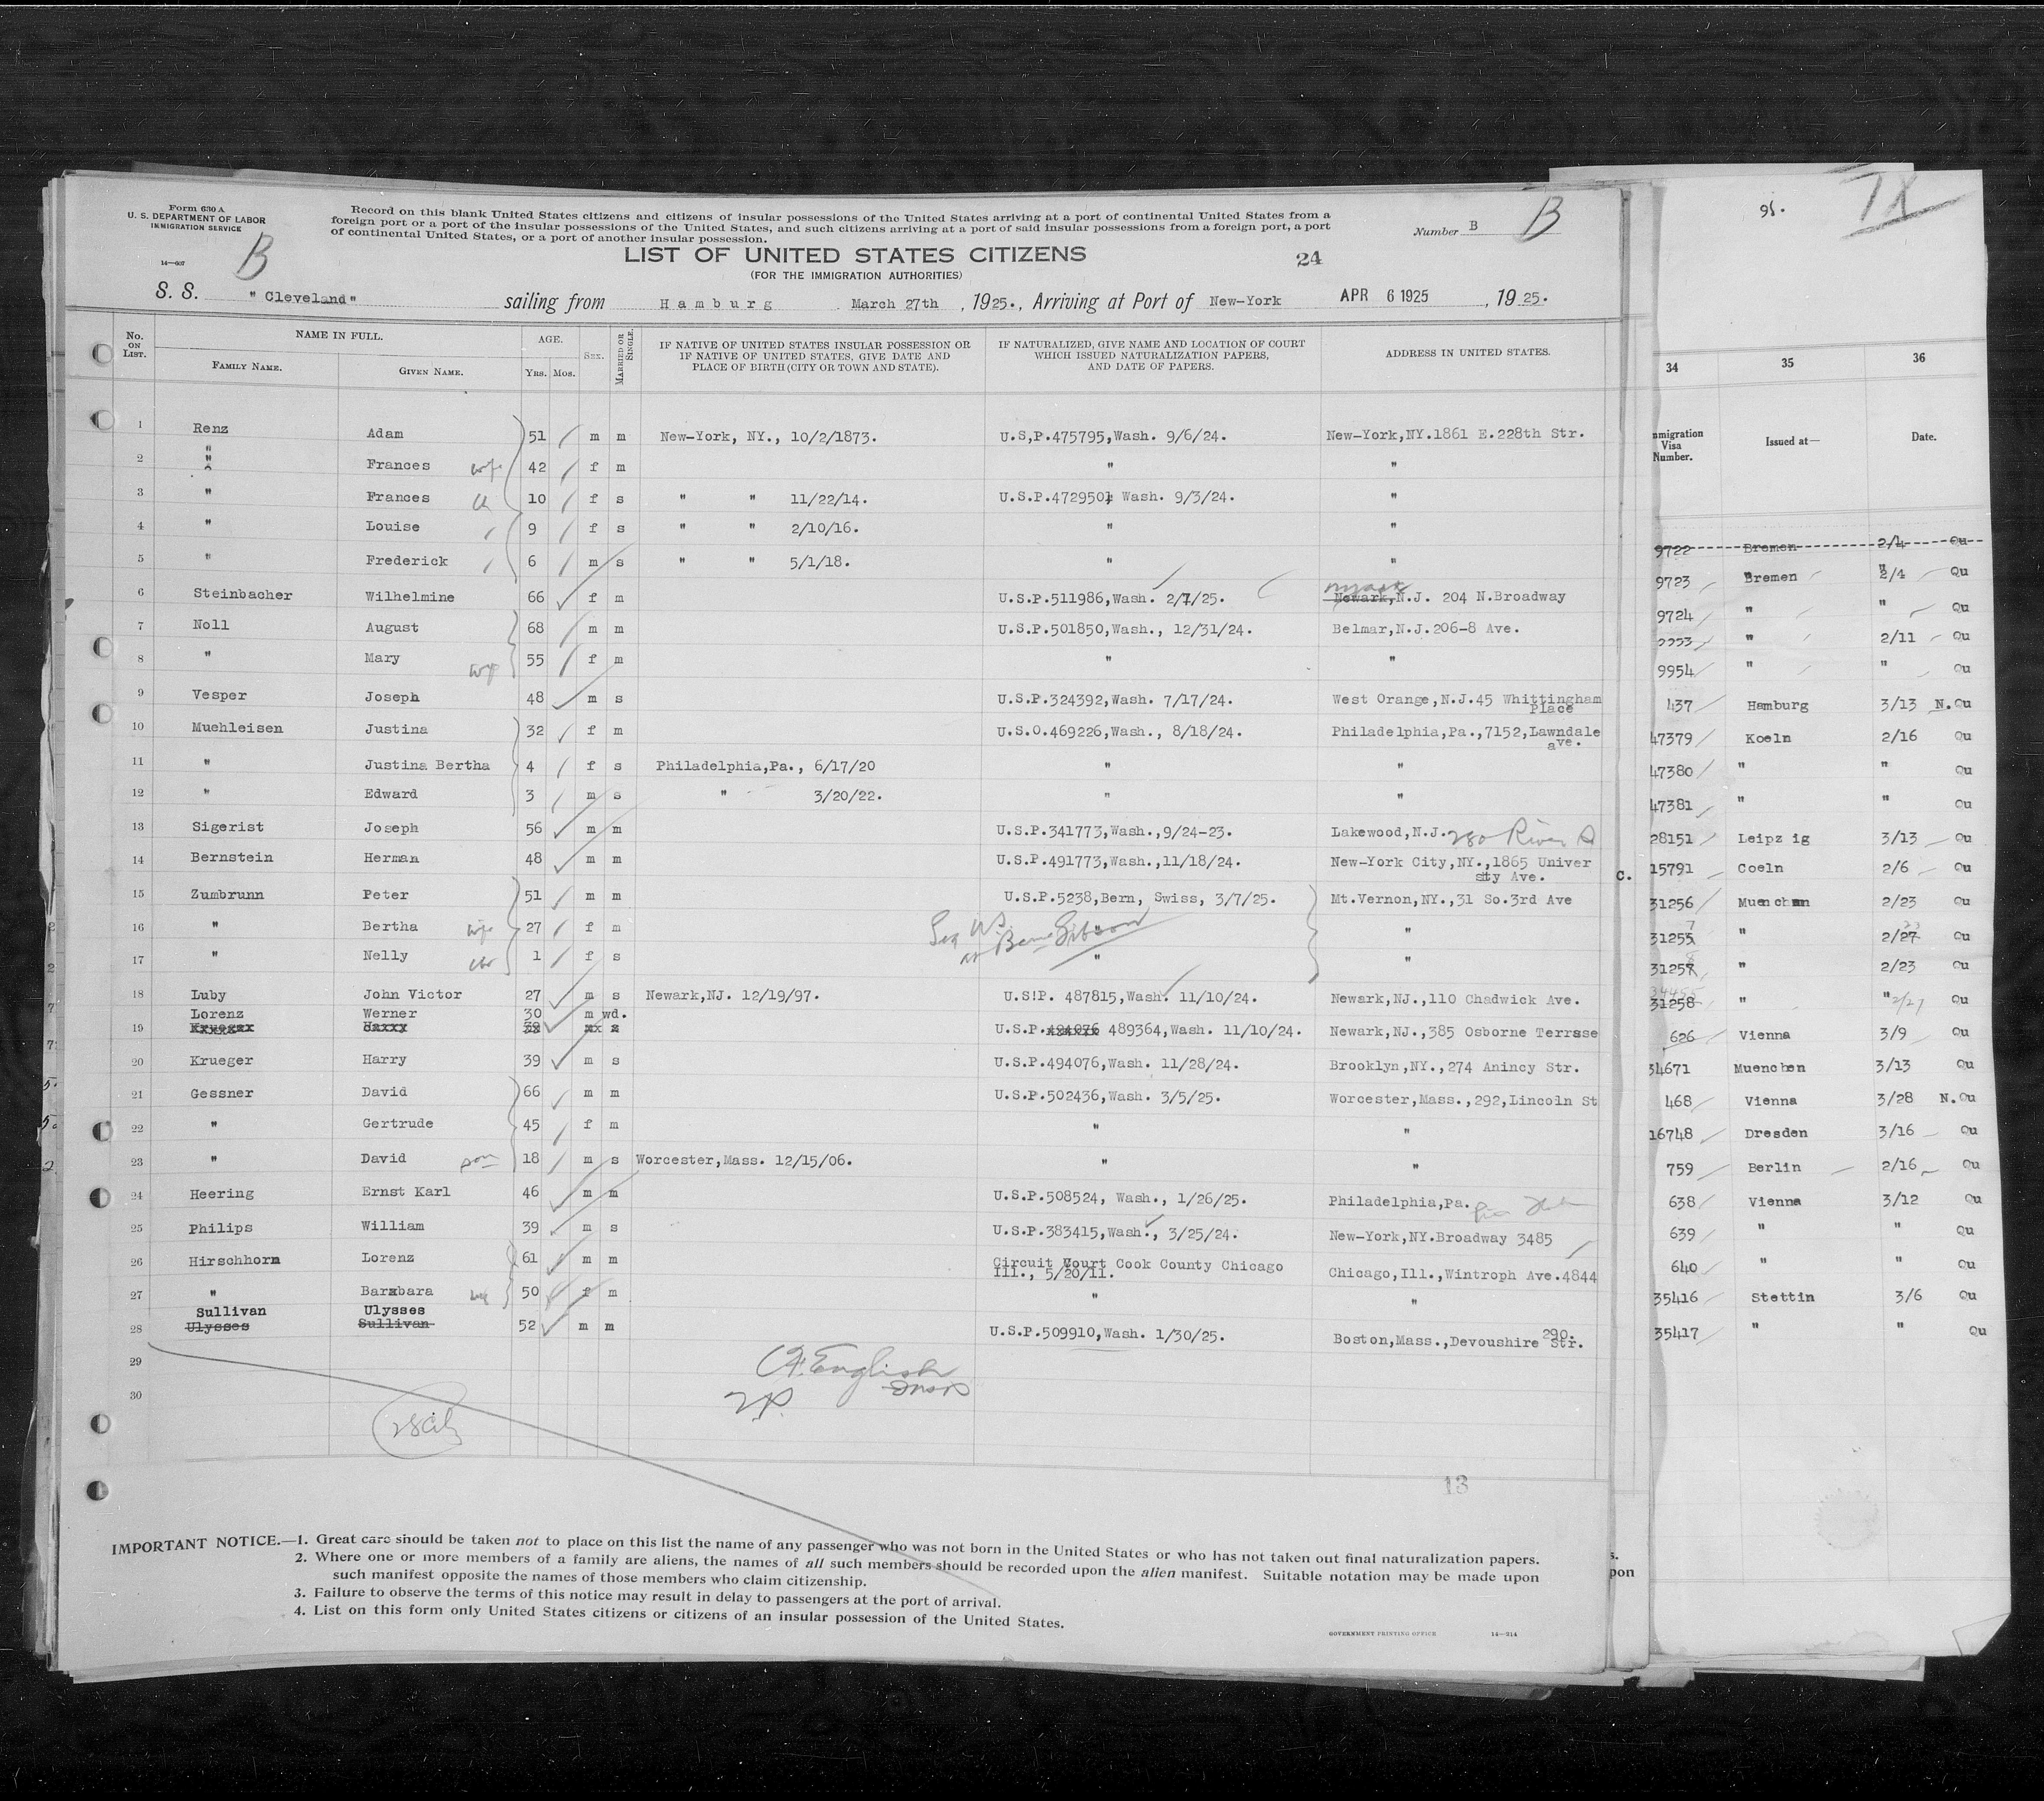 Form 630 A
U. S. DEPARTMENT OF LABOR
IMMIGRATION SERVICE
14—607
B
Record on this blank United States citizens and citizens of insular possessions of the United States arriving at a port of continental United States from a
foreign port or a port of the insular possessions of the United States, and such citizens arriving at a port of said insular possessions from a foreign port, a port
of continental United States, or a port of another insular possession.
Number B
B
LIST OF UNITED STATES CITIZENS
(FOR THE IMMIGRATION AUTHORITIES)
24
S. S. "Cleveland" sailing from Hamburg March 27th, 1925., Arriving at Port of New-York APR 6 1925, 1925.
No. ON LIST. NAME IN FULL. FAMILY NAME. GIVEN NAME. AGE. YRS. MOS. SEX. MARRIED OR SINGLE. IF NATIVE OF UNITED STATES INSULAR POSSESSION OR IF NATIVE OF UNITED STATES, GIVE DATE AND PLACE OF BIRTH (CITY OR TOWN AND STATE). IF NATURALIZED, GIVE NAME AND LOCATION OF COURT WHICH ISSUED NATURALIZATION PAPERS, AND DATE OF PAPERS. ADDRESS IN UNITED STATES.
1 Renz Adam 51 m m New-York, NY., 10/2/1873. U.S,P.475795,Wash. 9/6/24. New-York,NY.1861 E.228th Str.
2 " Frances wife 42 f m " "
3 " Frances 10 f s " " 11/22/14. U.S.P.472950 Wash. 9/3/24. "
4 " Louise 9 f s " " 2/10/16. " "
5 " Frederick 6 m s " " 5/1/18. " "
6 Steinbacher Wilhelmine 66 f m U.S.P.511986,Wash. 2/7/25. Nyack Newark,N.J. 204 N.Broadway
7 Noll August 68 m m U.S.P.501850,Wash., 12/31/24. Belmar,N.J.206-8 Ave.
8 " Mary wife 55 f m " "
9 Vesper Joseph 48 m s U.S.P.324392,Wash. 7/17/24. West Orange,N.J.45 Whittingham
Place
10 Muehleisen Justina 32 f m U.S.O.469226,Wash., 8/18/24. Philadelphia,Pa.,7152,Lawndale
ave.
11 " Justina Bertha 4 f s Philadelphia,Pa., 6/17/20 " "
12 " Edward 3 m s " 3/20/22. " "
13 Sigerist Joseph 56 m m U.S.P.341773,Wash.,9/24-23. Lakewood,N.J. 280 River
14 Bernstein Herman 48 m m U.S.P.491773,Wash.,11/18/24. New-York City,NY.,1865 Univer
sity Ave.
15 Zumbrunn Peter 51 m m U.S.P.5238,Bern, Swiss, 3/7/25. Mt.Vernon,NY.,31 So.3rd Ave
16 " Bertha wife 27 f m " "
17 " Nelly 1 f s " "
Gibson
18 Luby John Victor 27 m s Newark,NJ. 12/19/97. U.S!P. 487815,Wash. 11/10/24. Newark,NJ.,110 Chadwick Ave.
Lorenz Werner 30 m wd.
19 Krueger Harry 39 U.S.P.494076 489364,Wash. 11/10/24. Newark,NJ.,385 Osborne Terrsse
20 Krueger Harry 39 m s U.S.P.494076,Wash. 11/28/24. Brooklyn,NY.,274 Anincy Str.
21 Gessner David 66 m m U.S.P.502436,Wash. 3/5/25. Worcester,Mass.,292,Lincoln St
22 " Gertrude 45 f m " "
23 " David son 18 m s Worcester,Mass. 12/15/06. " "
24 Heering Ernst Karl 46 m m U.S.P.508524, Wash., 1/26/25. Philadelphia,Pa.
25 Philips William 39 m s U.S.P.383415,Wash., 3/25/24. New-York,NY.Broadway 3485
26 Hirschhorn Lorenz 61 m m Circuit Court Cook County Chicago
Ill., 5/20/11. Chicago,Ill.,Wintroph Ave.4844
27 " Barbara 50 f m " "
Sullivan Ulysses
28 Ulysses Sullivan 52 m m U.S.P.509910,Wash. 1/30/25. Boston,Mass.,Devoushire 290. Str.
29
30
English
Insp
13
IMPORTANT NOTICE.—1. Great care should be taken not to place on this list the name of any passenger who was not born in the United States or who has not taken out final naturalization papers.
2. Where one or more members of a family are aliens, the names of all such members should be recorded upon the alien manifest. Suitable notation may be made upon
such manifest opposite the names of those members who claim citizenship.
3. Failure to observe the terms of this notice may result in delay to passengers at the port of arrival.
4. List on this form only United States citizens or citizens of an insular possession of the United States.
GOVERNMENT PRINTING OFFICE 14—214
95.
34 35 36
mmigration Visa Number. Issued at— Date.
9722 Bremen 2/4 Qu
9723 Bremen 2/4 Qu
9724 " " Qu
" 2/11 Qu
9954 " " Qu
437 Hamburg 3/13 N.Qu
47379 Koeln 2/16 Qu
47380 " " Qu
47381 " " Qu
28151 Leipz ig 3/13 Qu
c. 15791 Coeln 2/6 Qu
31256 Muenchen 2/23 Qu
31255 " 2/27 Qu
31257 " 2/23 Qu
31258 " " 2/27 Qu
626 Vienna 3/9 Qu
34671 Muenchen 3/13 Qu
468 Vienna 3/28 N.Qu
16748 Dresden 3/16 Qu
759 Berlin 2/16 Qu
638 Vienna 3/12 Qu
639 " " Qu
640 " " Qu
35416 Stettin 3/6 Qu
35417 " " Qu
s.
pon